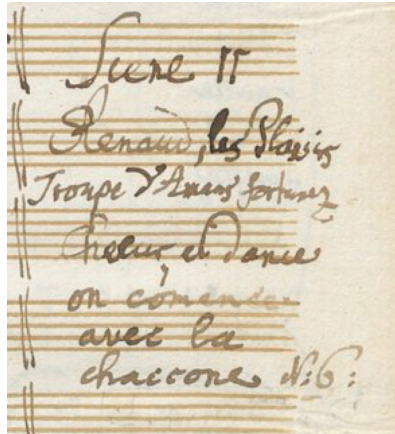 Scene II
Renaud, les Plaisirs
Troupe d'Amans fortunez
Chœur, et dance
on comence
avec la
chaccone N: 6: